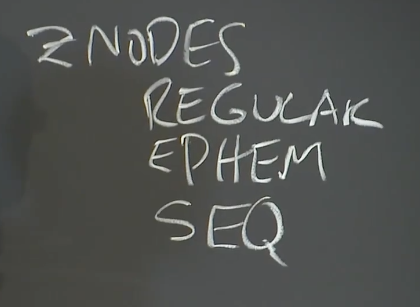 ZNODES
REGULAR
EPHEM
SEQ